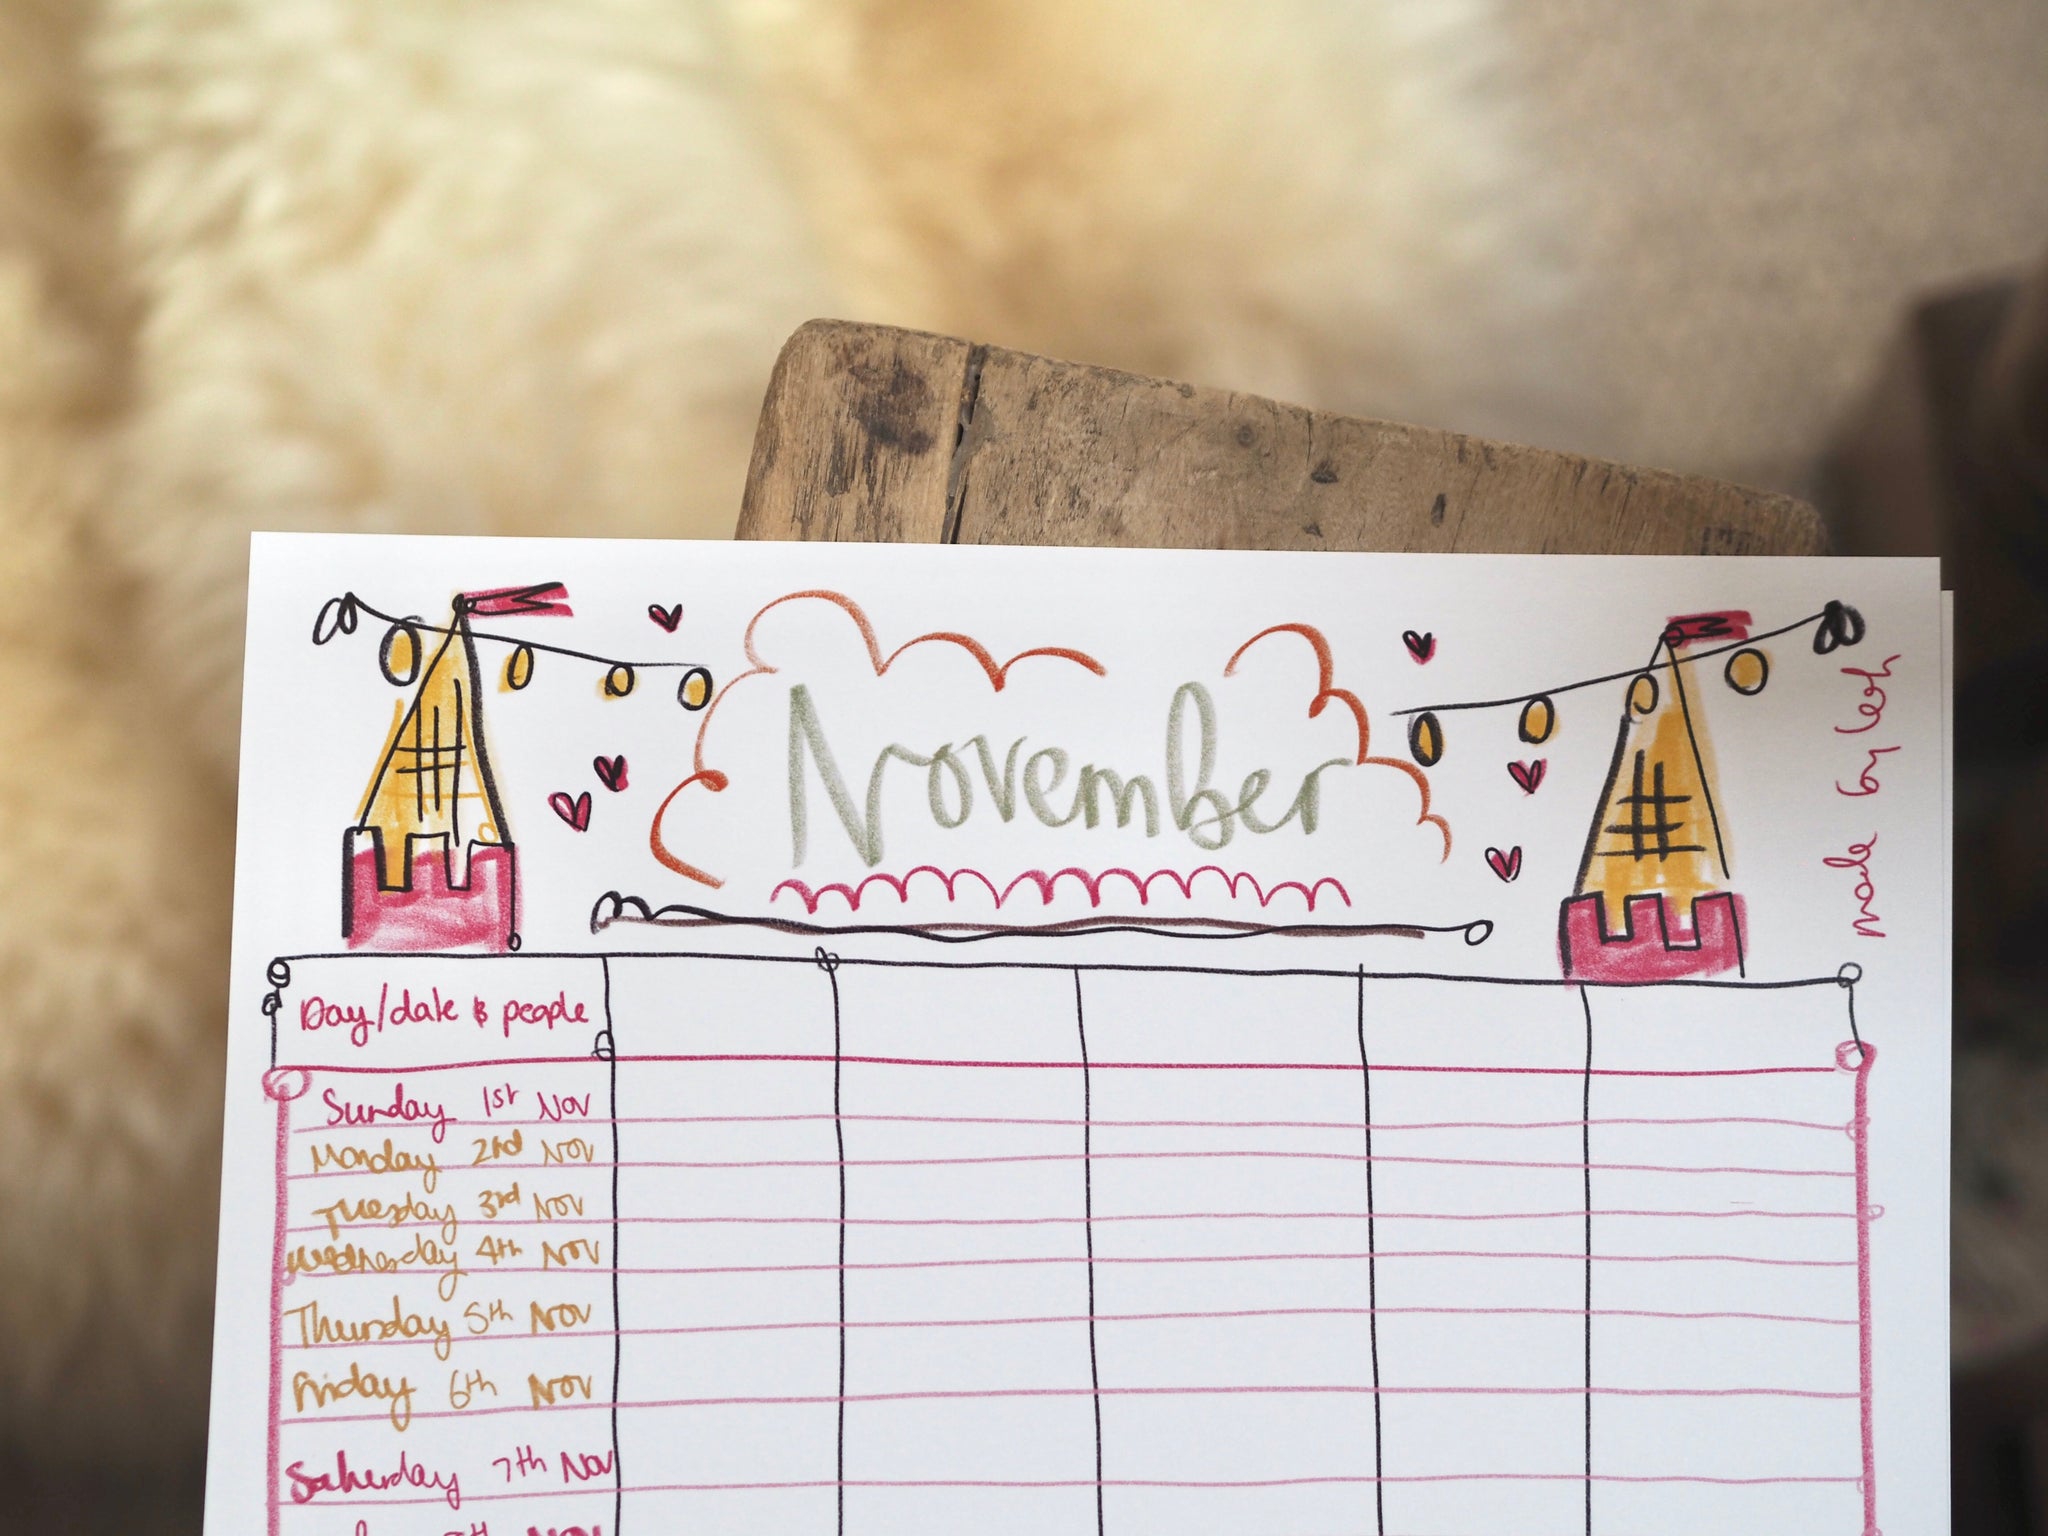 November
made by Leah
Day/date & people
Sunday 1st Nov
Monday 2nd Nov
Tuesday 3rd Nov
Wednesday 4th Nov
Thursday 5th Nov
Friday 6th Nov
Saturday 7th Nov